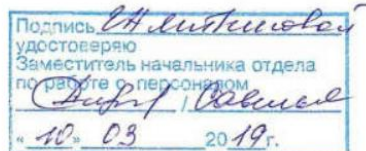 Подпись
удостоверяю
Заместитель начальника отдела
по работе с персоналом
/
« 10 » 03 2019 г.